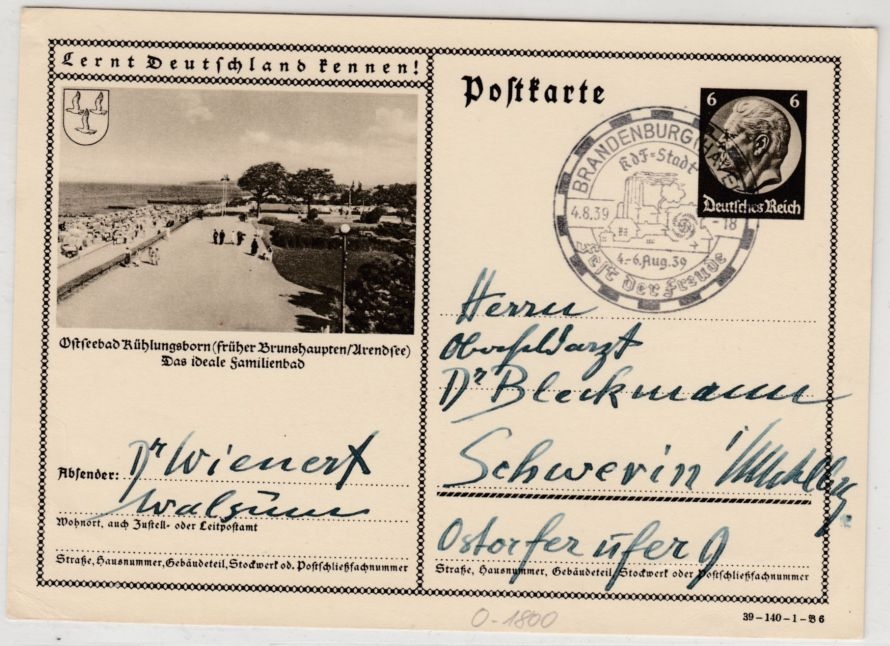 Lernt Deutschland kennen!
Ostseebad Kühlungsborn (früher Brunshaupten/Arendsee)
Das ideale Familienbad
Absender: Dr Wienert
Walsum
Wohnort, auch Zustell- oder Leitpostamt
Straße, Hausnummer, Gebäudeteil, Stockwerk od. Postschließfachnummer
Postkarte
6 6
Deutsches Reich
BRANDENBURG (HAVEL)
KdF=Stadt
4.8.39 -18
4.-6. Aug. 39
Fest der Freude
Herrn
Oberfeldarzt
Dr Bleckmann
Schwerin
Ostorfer Ufer 9
Straße, Hausnummer, Gebäudeteil, Stockwerk oder Postschließfachnummer
39-140-1-B6
0-1800